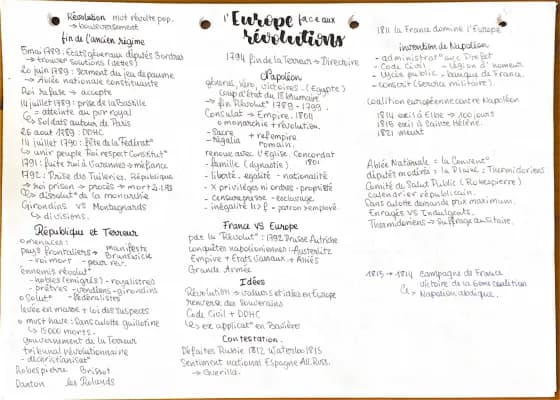 Révolution mvt révolte pop.
→ bouleversement
fin de l'ancien régime
5 mai 1789 : Etats généraux députés 3 ordres
→ trouver solutions (dettes)
20 juin 1789 : serment du jeu de paume
→ Ablée nationale constituante
Roi refuse → accepte
14 juillet 1789 : prise de la Bastille
= atteinte au pvr royal
↳ soldats autour de Paris
26 aout 1789 : DDHC
14 juillet 1790 : fête de la Fédérat°
↳ unir peuple Roi respect Constitut°
1791 : fuite Roi à Varennes → méfiance
1792 : Prise des Tuileries. République
→ Roi prison → procès → mort
↳ dissolut° de la monarchie
Girondins VS Montagnards
↳ divisions.
République et Terreur
o menaces :
pays frontaliers → manifeste Brunswick
- roi mort - peur rév.
ennemis révolut°
- nobles (émigrés) - royalistres
- prêtres - vendéens - girondins
o Solut° - fédéralistes
levée en masse + loi des suspects
o must have : sans culotte guillotine
↳ 15000 morts.
gouvernement de la Terreur
tribunal révolutionnaire
- décristianisat°
Robespierre Brissot
Danton les Rolands
l'Europe face aux
révolutions
1794 fin de la Terreur → Directoire
Napoléon
général, héro, victoires - (Egypte)
coup d'état du 18 brumaire
→ fin Révolut° 1789 - 1799.
Consulat → Empire. 1804
o monarchie + révolution.
- Sacre
- régalia + ref empire romain.
renoue avec l'Eglise. Concordat 1801
- famille (dynastie)
- liberté - égalité - nationalité
- x privilèges ni ordres - propriété
- censure presse - esclavage
- inégalité H>f - patron > employé.
France VS Europe
pdt la Révolut° : 1792 Prusse Autriche
conquêtes napoléoniennes : Austerlitz
Empire + Etats vassaux + Alliés
Grande Armée
Idées
Révolution → valeurs et idées en Europe
renverse des souverains
Code Civil + DDHC
↳ ex applicat° en Bavière
Contestation.
Défaites Russie 1812 Waterloo 1815
Sentiment national Espagne All. Russ.
→ Guerilla.
1811 la France domine l'Europe
invention de Napoléon
- administrat° avec Préfet
- Code Civil - légion d'honneur
- Lycée public - banque de France.
- conscrit (service militaire).
Coalition européenne contre Napoléon
1814 exilé Elbe → 100 jours
1815 exil à Sainte Hélène.
1821 meurt
Ablée Nationale : la Convent°
députés modérés : la Plaine : Thermidoriens
Comité de Salut Public (Robespierre)
Calendrier républicain.
Sans culotte demande prix maximum.
Enragés VS Indulgents.
Thermidoriens → suffrage censitaire.
1813 → 1814 campagne de France
victoire de la 6eme coalition
↳ Napoléon abdique.